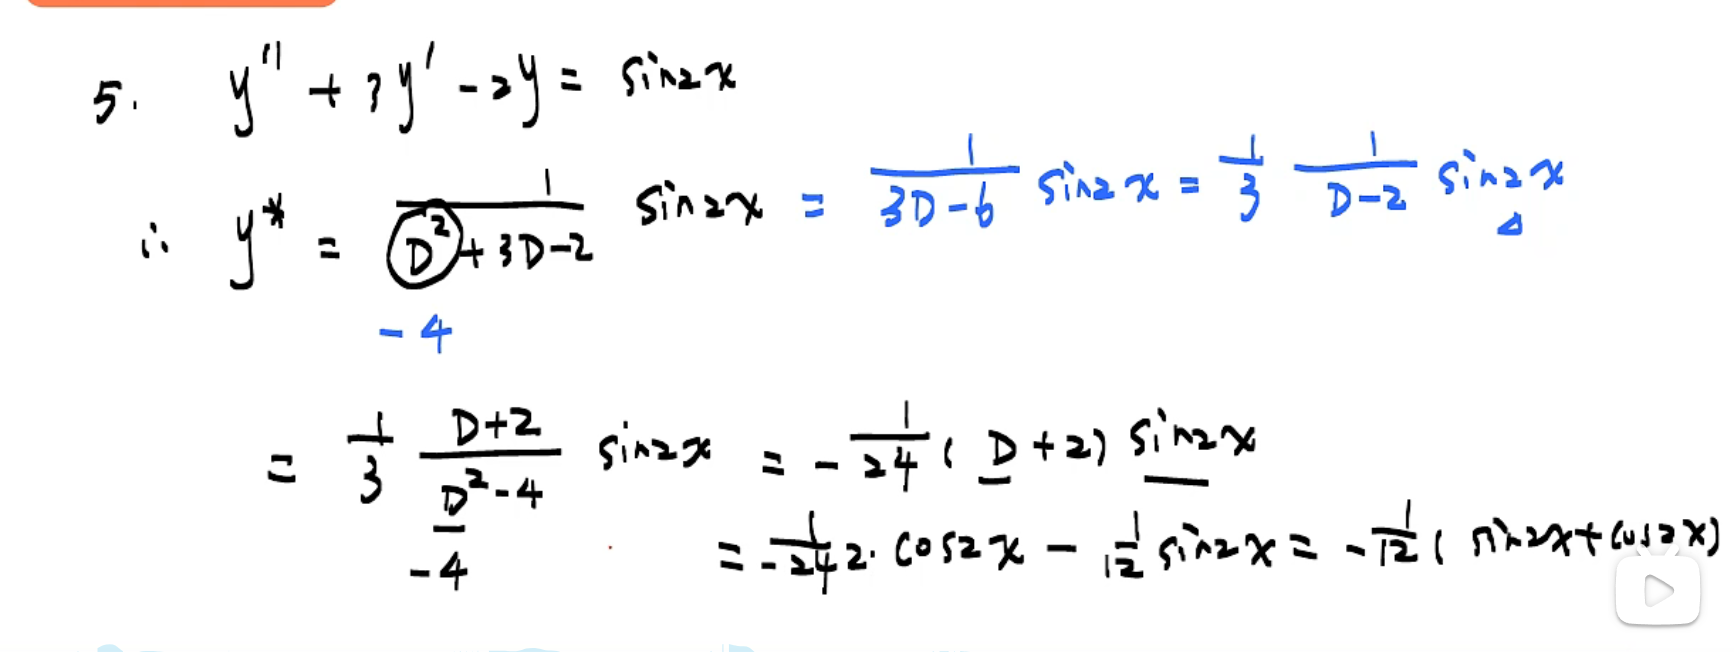 5. y'' + 3y' - 2y = sin2x
∴ y* = 1/(D² + 3D-2) sin2x = 1/(3D-6) sin2x = 1/3 1/(D-2) sin2x
-4
= 1/3 (D+2)/(D²-4) sin2x = -1/24 (D+2) sin2x
-4
= -1/24 2·cos2x - 1/12 sin2x = -1/12 (sin2x+cos2x)